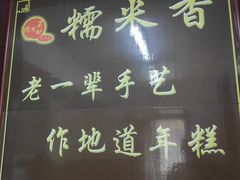 糯米香
老一辈手艺
作地道年糕